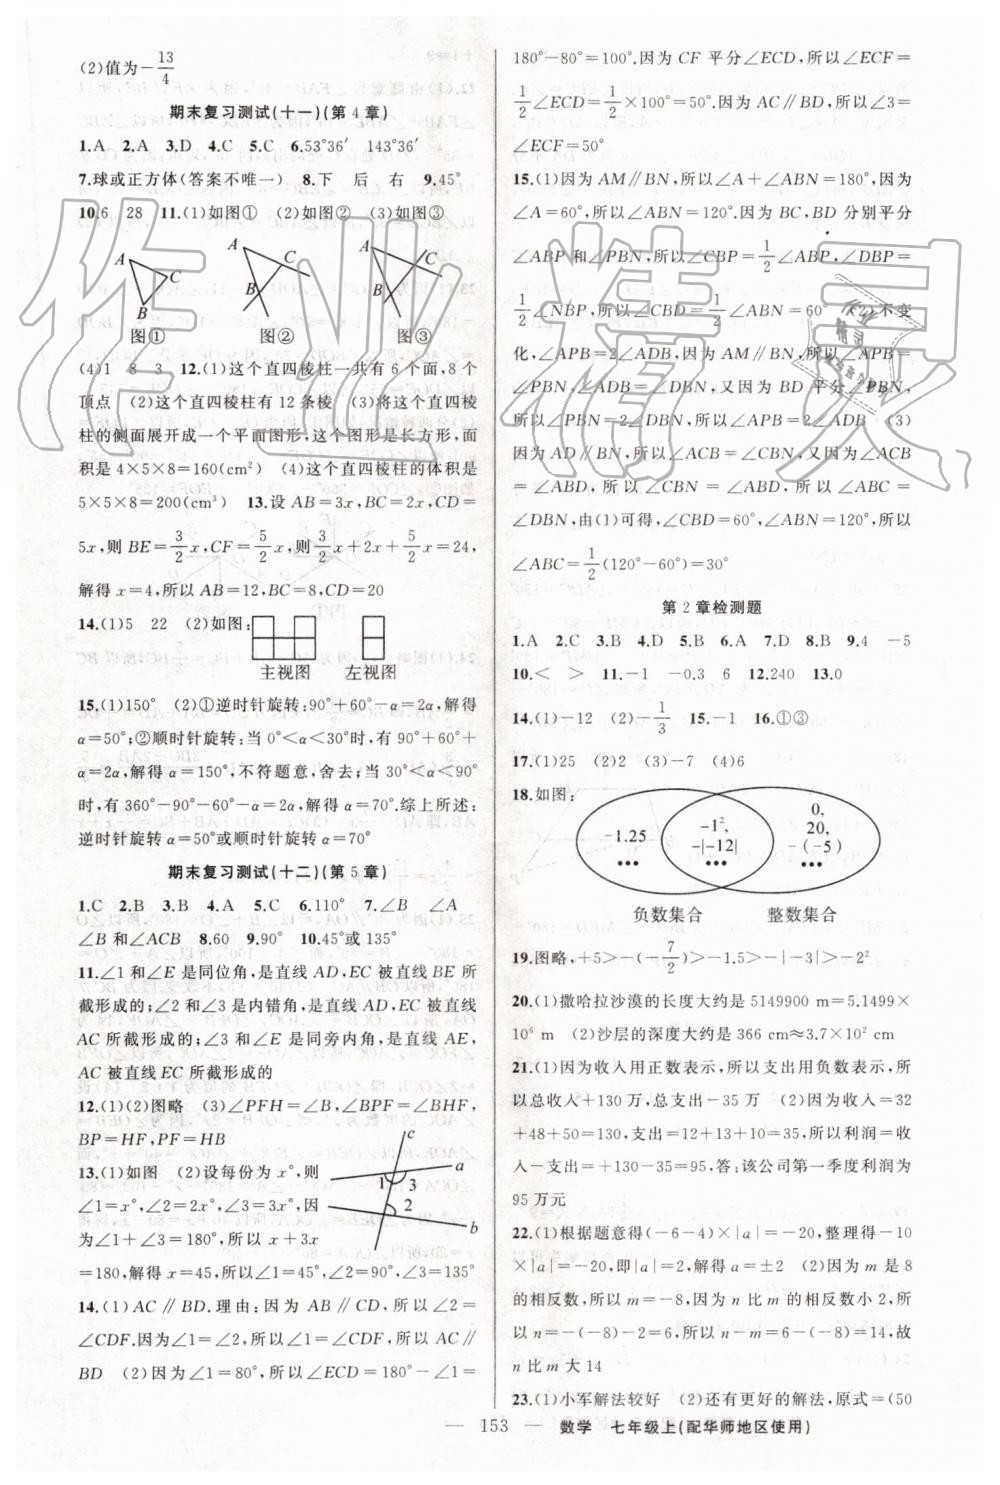 (2)值为－13/4
期末复习测试(十一)(第4章)
1.A 2.A 3.D 4.C 5.C 6.53°36′ 143°36′
7.球或正方体(答案不唯一) 8.下 后 右 9.45°
10.6 28 11.(1)如图① (2)如图② (3)如图③
A C B 图①
A C B 图②
A C B 图③
(4)1 8 3 12.(1)这个直四棱柱一共有6个面,8个
顶点 (2)这个直四棱柱有12条棱 (3)将这个直四棱
柱的侧面展开成一个平面图形,这个图形是长方形,面
积是4×5×8=160(cm²) (4)这个直四棱柱的体积是
5×5×8=200(cm³) 13.设AB=3x,BC=2x,CD=
5x,则BE=3/2x,CF=5/2x,则3/2x+2x+5/2x=24,
解得x=4,所以AB=12,BC=8,CD=20
14.(1)5 22 (2)如图:
主视图 左视图
15.(1)150° (2)①逆时针旋转:90°+60°－α=2α,解得
α=50°;②顺时针旋转:当0°<α<30°时,有90°+60°+
α=2α,解得α=150°,不符题意,舍去;当30°<α<90°
时,有360°－90°－60°－α=2α,解得α=70°.综上所述:
逆时针旋转α=50°或顺时针旋转α=70°
期末复习测试(十二)(第5章)
1.C 2.B 3.B 4.C 5.C 6.110° 7.∠B ∠A
∠B和∠ACB 8.60 9.90° 10.45°或135°
11.∠1和∠E是同位角,是直线AD,EC被直线BE所
截形成的;∠2和∠3是内错角,是直线AD,EC被直线
AC所截形成的;∠3和∠E是同旁内角,是直线AE,
AC被直线EC所截形成的
12.(1)(2)图略 (3)∠PFH=∠B,∠BPF=∠BHF,
BP=HF,PF=HB
13.(1)如图 (2)设每份为x°,则
∠1=x°,∠2=3x°,∠3=3x°,因
为∠1+∠3=180°,所以x+3x
=180,解得x=45,所以∠1=45°,∠2=∠3=135°
c a 3 1 2 b
14.(1)AC∥BD.理由:因为AB∥CD,所以∠2=
∠CDF.因为∠1=∠2,所以∠1=∠CDF,所以AC∥
BD (2)因为∠1=80°,所以∠ECD=180°－∠1=
180°－80°=100°.因为CF平分∠ECD,所以∠ECF=
1/2∠ECD=1/2×100°=50°.因为AC∥BD,所以∠3=
∠ECF=50°
15.(1)因为AM∥BN,所以∠A+∠ABN=180°,因为
∠A=60°,所以∠ABN=120°.因为BC,BD分别平分
∠ABP和∠PBN,所以∠CBP=1/2∠ABP,∠DBP=
1/2∠NBP,所以∠CBD=1/2∠ABN=60° (2)不变
化,∠APB=2∠ADB,因为AM∥BN,所以∠APB=
∠PBN,∠ADB=∠DBN,又因为BD平分∠PBN,
所以∠PBN=2∠DBN,所以∠APB=2∠ADB (3)
因为AD∥BN,所以∠ACB=∠CBN,又因为∠ACB
=∠ABD,所以∠CBN=∠ABD,所以∠ABC=
∠DBN,由(1)可得,∠CBD=60°,∠ABN=120°,所以
∠ABC=1/2(120°－60°)=30°
第2章检测题
1.A 2.C 3.B 4.D 5.B 6.A 7.D 8.B 9.4 －5
10.< > 11.－1 －0.3 6 12.240 13.0
14.(1)－12 (2)－1/3 15.－1 16.①③
17.(1)25 (2)2 (3)－7 (4)6
18.如图:
-1.25 •••
-1², -|-12| •••
0, 20, -(-5) •••
负数集合 整数集合
19.图略,+5>－(－7/2)>－1.5>－|－3|>－2²
20.(1)撒哈拉沙漠的长度大约是5149900 m=5.1499×
10⁶ m (2)沙层的深度大约是366 cm≈3.7×10² cm
21.(1)因为收入用正数表示,支出用负数表示,所
以总收入+130万,总支出－35万 (2)因为收入=32
+48+50=130,支出=12+13+10=35,所以利润=收
入－支出=+130－35=95,答:该公司第一季度利润为
95万元
22.(1)根据题意得(－6－4)×|a|=－20,整理得－10
×|a|=－20,即|a|=2,解得a=±2 (2)因为m是8
的相反数,所以m=－8,因为n比m的相反数小2,所
以n=－(－8)－2=6,所以n－m=6－(－8)=14,故
n比m大14
23.(1)小军解法较好 (2)还有更好的解法,原式=(50
— 153 — 数学 七年级上(配华师地区使用)
作业精灵